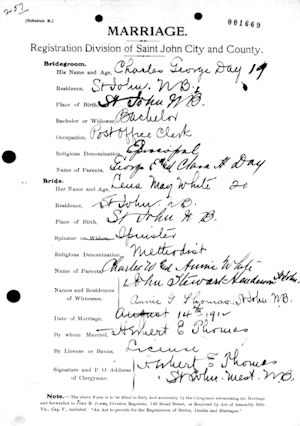 257
(Schedule B.)
001669
MARRIAGE.
Registration Division of Saint John City and County.
Bridegroom.
His Name and Age, Charles George Day 19
Residence, St John, N.B.,
Place of Birth, St John N B.
Bachelor or Widower, Bachelor
Occupation, Post Office Clerk
Religious Denomination, Episcopal
Name of Parents, George & Clara H Day
Bride.
Her Name and Age, Lena May White 20
Residence, St John, N.B.
Place of Birth, St John N B.
Spinster or Widow, Spinster
Religious Denomination, Methodist
Name of Parents, Charles W & Annie White
Names and Residences of Witnesses, John Stewart St John
Annie G Thomas, St John N.B.
Date of Marriage, August 14th 191
By whom Married, H E Thomas
By License or Banns, License
Signature and P. O. Address of Clergyman: E Thomas
St John West. N.B.
Note.—The above Form is to be filled up fully and accurately by the Clergyman solemnizing the Marriage
and forwarded to John B. Jones, Division Registrar,
Cap. V., intituled "An Act to provide for the Registration of Births, Deaths and Marriages."